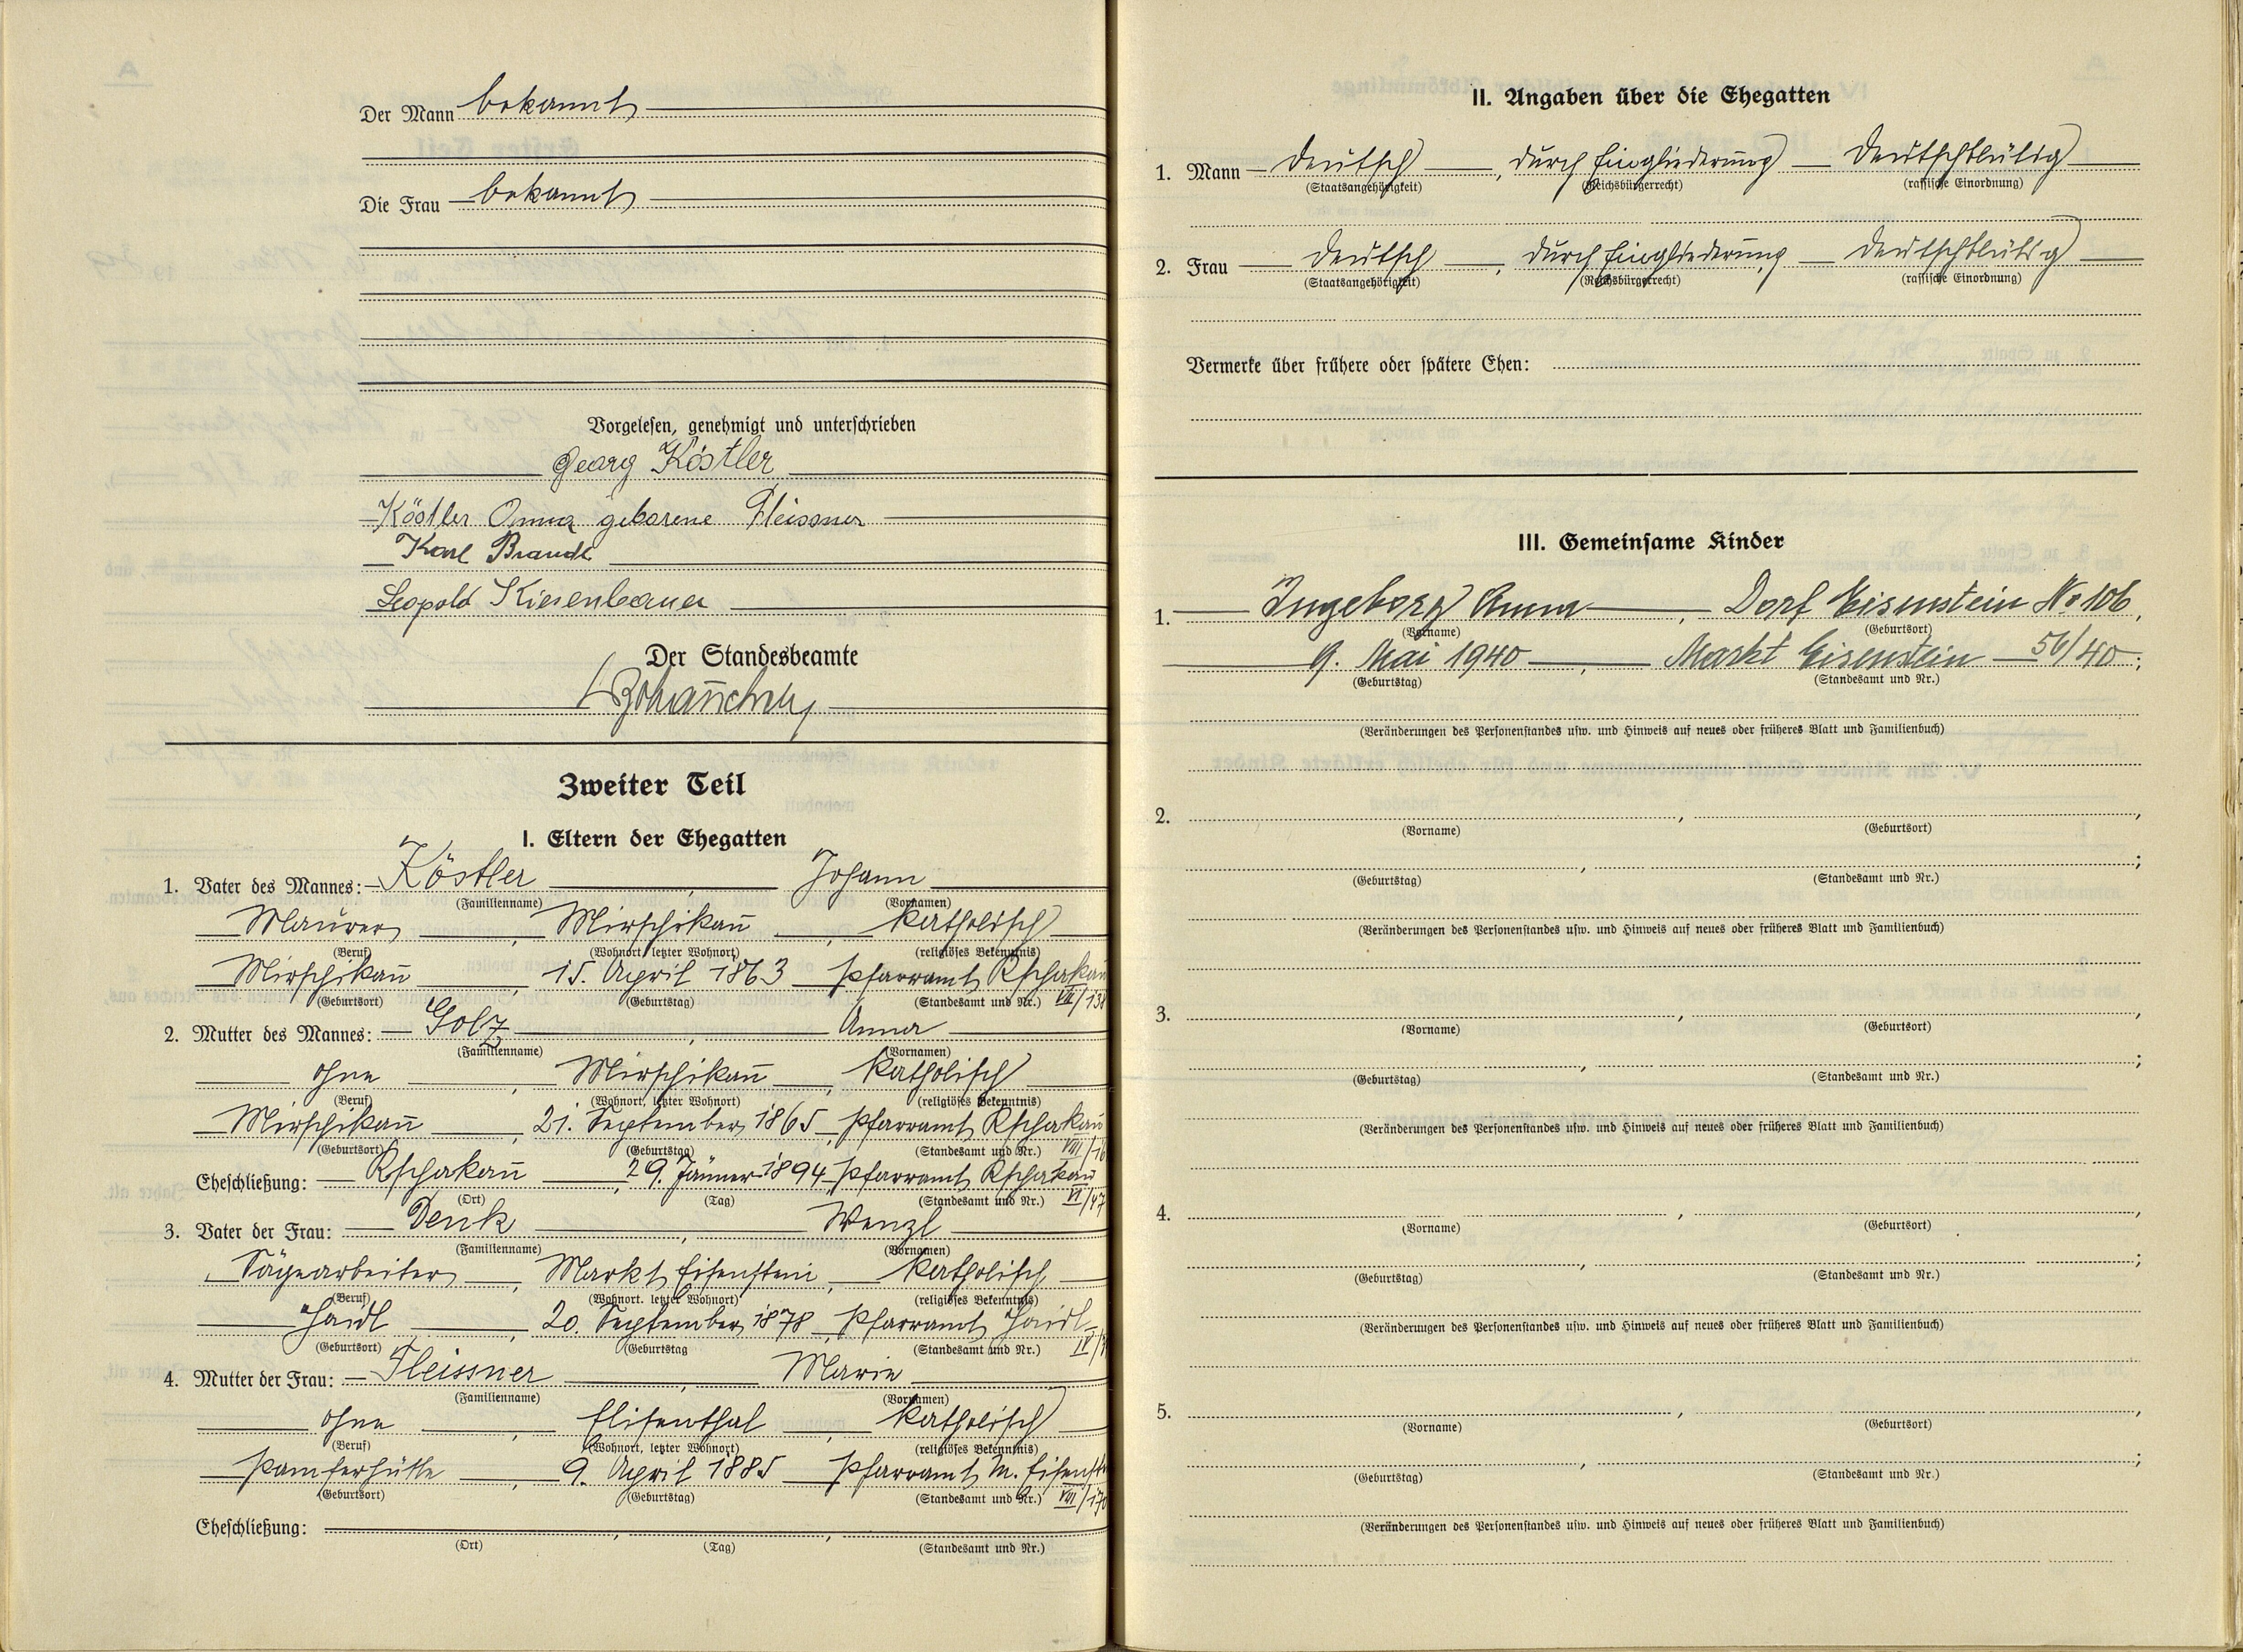 Der Mann bekannt
Die Frau bekannt
Vorgelesen, genehmigt und unterschrieben
Georg Köstler
Köstler Anna geborene Fleissner
Karl Brandl
Leopold Kiesenbauer
Der Standesbeamte
Zweiter Teil
I. Eltern der Ehegatten
1. Vater des Mannes: Köstler, Johann
(Familienname) (Vornamen)
Maurer, Mirschikau, katholisch
(Beruf) (Wohnort, letzter Wohnort) (religiöses Bekenntnis)
Mirschikau, 15. April 1863, Pfarramt Kschakau
(Geburtsort) (Geburtstag) (Standesamt und Nr.) VII/138
2. Mutter des Mannes: Golz, Anna
(Familienname) (Vornamen)
ohne, Mirschikau, katholisch
(Beruf) (Wohnort, letzter Wohnort) (religiöses Bekenntnis)
Mirschikau, 21. September 1865, Pfarramt Kschakau
(Geburtsort) (Geburtstag) (Standesamt und Nr.) VIII/16
Eheschließung: Kschakau, 29. Jänner 1894, Pfarramt Kschakau
(Ort) (Tag) (Standesamt und Nr.) VI/47
3. Vater der Frau: Denk, Wenzl
(Familienname) (Vornamen)
Sägearbeiter, Markt Eisenstein, katholisch
(Beruf) (Wohnort, letzter Wohnort) (religiöses Bekenntnis)
Haidl, 20. September 1878, Pfarramt Haidl
(Geburtsort) (Geburtstag (Standesamt und Nr.) IV/
4. Mutter der Frau: Fleissner, Marie
(Familienname) (Vornamen)
ohne, Elisenthal, katholisch
(Beruf) (Wohnort, letzter Wohnort) (religiöses Bekenntnis)
Pamferhütte, 9. April 1885, Pfarramt M. Eisenst
(Geburtsort) (Geburtstag) (Standesamt und Nr.) VIII/170
Eheschließung:
(Ort) (Tag) (Standesamt und Nr.)
II. Angaben über die Ehegatten
1. Mann deutsch, durch Eingliederung deutschblütig
(Staatsangehörigkeit) (Reichsbürgerrecht) (rassische Einordnung)
2. Frau deutsch, durch Eingliederung deutschblütig
(Staatsangehörigkeit) (Reichsbürgerrecht) (rassische Einordnung)
Vermerke über frühere oder spätere Ehen:
III. Gemeinsame Kinder
1. Ingeborg Anna, Dorf Eisenstein No 106,
(Vorname) (Geburtsort)
9. Mai 1940, Markt Eisenstein 56/40;
(Geburtstag) (Standesamt und Nr.)
(Veränderungen des Personenstandes usw. und Hinweis auf neues oder früheres Blatt und Familienbuch)
2.
(Vorname) (Geburtsort)
(Geburtstag) (Standesamt und Nr.)
(Veränderungen des Personenstandes usw. und Hinweis auf neues oder früheres Blatt und Familienbuch)
3.
(Vorname) (Geburtsort)
(Geburtstag) (Standesamt und Nr.)
(Veränderungen des Personenstandes usw. und Hinweis auf neues oder früheres Blatt und Familienbuch)
4.
(Vorname) (Geburtsort)
(Geburtstag) (Standesamt und Nr.)
(Veränderungen des Personenstandes usw. und Hinweis auf neues oder früheres Blatt und Familienbuch)
5.
(Vorname) (Geburtsort)
(Geburtstag) (Standesamt und Nr.)
(Veränderungen des Personenstandes usw. und Hinweis auf neues oder früheres Blatt und Familienbuch)